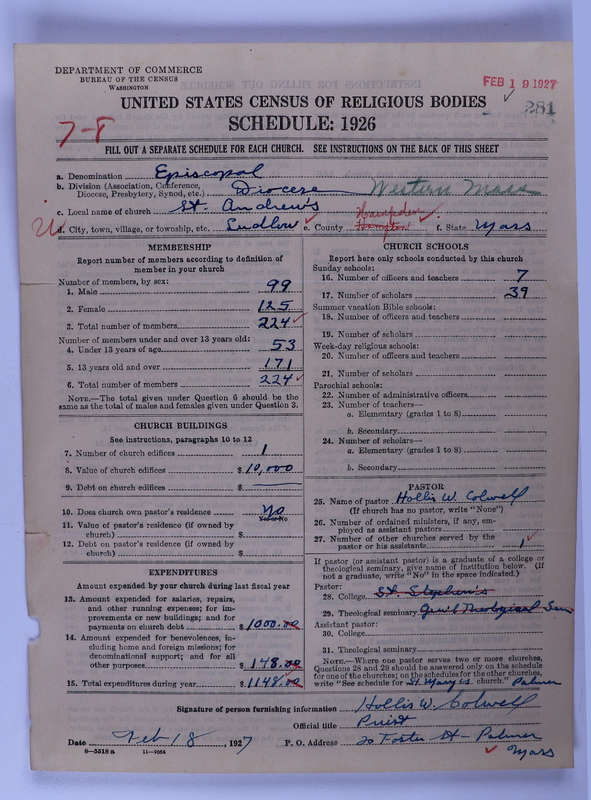 DEPARTMENT OF COMMERCE
BUREAU OF THE CENSUS
WASHINGTON
FEB 19 1927
281
UNITED STATES CENSUS OF RELIGIOUS BODIES
SCHEDULE: 1926
7-F
FILL OUT A SEPARATE SCHEDULE FOR EACH CHURCH. SEE INSTRUCTIONS ON THE BACK OF THIS SHEET
a. Denomination Episcopal
b. Division (Association, Conference, Diocese, Presbytery, Synod, etc.) Diocese Western Mass
c. Local name of church St. Andrew's
d. City, town, village, or township, etc. Ludlow e. County Hampden Hampton f. State Mass
MEMBERSHIP
Report number of members according to definition of
member in your church
Number of members, by sex:
1. Male 99
2. Female 125
3. Total number of members 224
Number of members under and over 13 years old:
4. Under 13 years of age 53
5. 13 years old and over 171
6. Total number of members 224
NOTE.—The total given under Question 6 should be the
same as the total of males and females given under Question 3.
CHURCH BUILDINGS
See instructions, paragraphs 10 to 12
7. Number of church edifices 1
8. Value of church edifices $10,000
9. Debt on church edifices $
10. Does church own pastor's residence No
Yes or No
11. Value of pastor's residence (if owned by
church) $
12. Debt on pastor's residence (if owned by
church) $
EXPENDITURES
Amount expended by your church during last fiscal year
13. Amount expended for salaries, repairs,
and other running expenses; for im-
provements or new buildings; and for
payments on church debt $1000.00
14. Amount expended for benevolences, in-
cluding home and foreign missions; for
denominational support; and for all
other purposes $148.00
15. Total expenditures during year $1148.00
CHURCH SCHOOLS
Report here only schools conducted by this church
Sunday schools:
16. Number of officers and teachers 7
17. Number of scholars 39
Summer vacation Bible schools:
18. Number of officers and teachers
19. Number of scholars
Week-day religious schools:
20. Number of officers and teachers
21. Number of scholars
Parochial schools:
22. Number of administrative officers
23. Number of teachers—
a. Elementary (grades 1 to 8)
b. Secondary
24. Number of scholars—
a. Elementary (grades 1 to 8)
b. Secondary
PASTOR
25. Name of pastor Hollis W. Colwell
(If church has no pastor, write "None")
26. Number of ordained ministers, if any, em-
ployed as assistant pastors
27. Number of other churches served by the
pastor or his assistants 1
If pastor (or assistant pastor) is a graduate of a college or
theological seminary, give name of institution below. (If
not a graduate, write "No" in the space indicated.)
Pastor:
28. College St. Stephens
29. Theological seminary Gen'l Theological Sem
Assistant pastor:
30. College
31. Theological seminary
NOTE.—Where one pastor serves two or more churches,
Questions 28 and 29 should be answered only on the schedule
for one of the churches; on the schedules for the other churches,
write "See schedule for St. Mary's church." Palmer
Signature of person furnishing information Hollis W. Colwell
Official title Priest
Date Feb 18, 1927 P. O. Address 20 Foster St- Palmer
Mass
8-5518a 11-9054